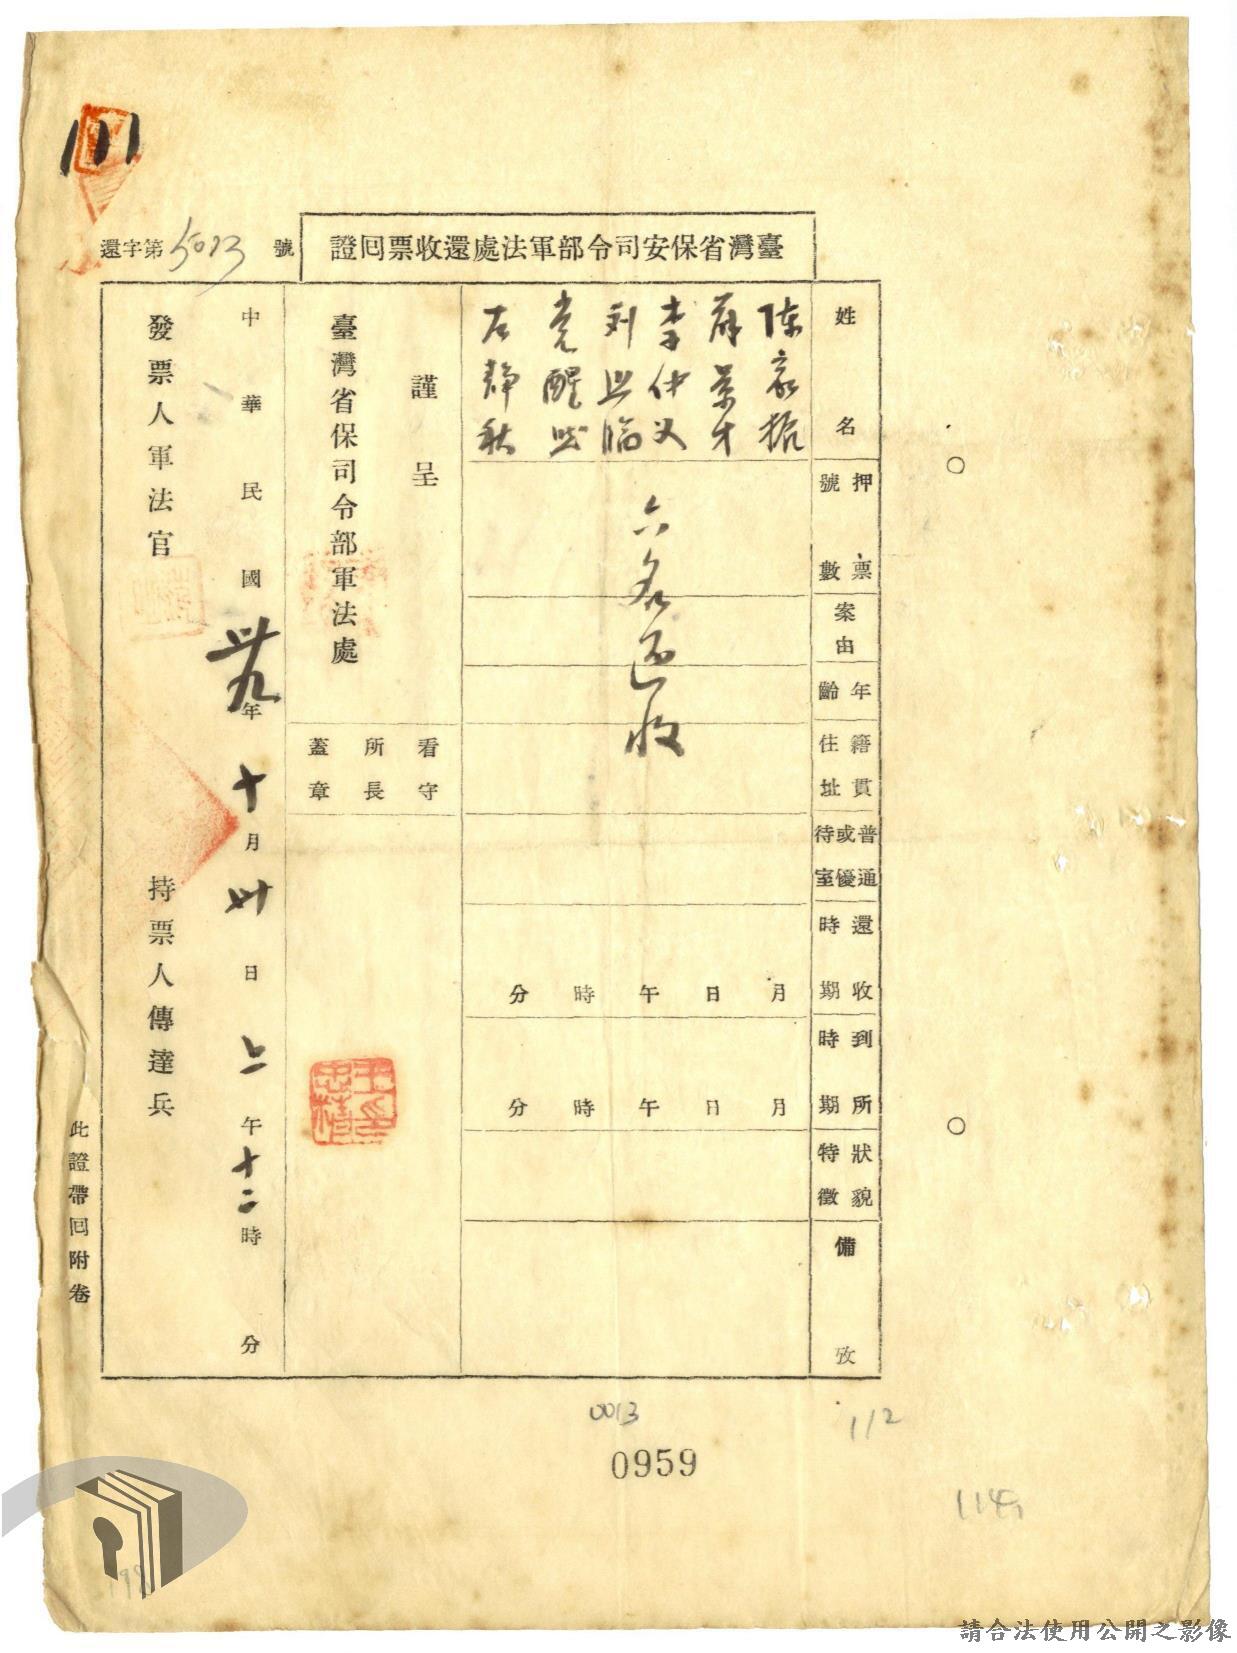 臺灣省保安司令部軍法處還收票回證
還字第5023號
姓名
押票號數
案由
年齡
籍貫住址
普通或優待室
還收時期
到所時期
狀貌特徵
備攷
陳家振
薛景才
李仲义
刘興臨
党醒然
石靜秋
六名還收
月日午時分
月日午時分
謹呈
臺灣省保司令部軍法處
看守所長蓋章
中華民國卅九年十月卅日上午十二時分
發票人軍法官
持票人傳達兵
此證帶回附卷
0013
0959
112
請合法使用公開之影像